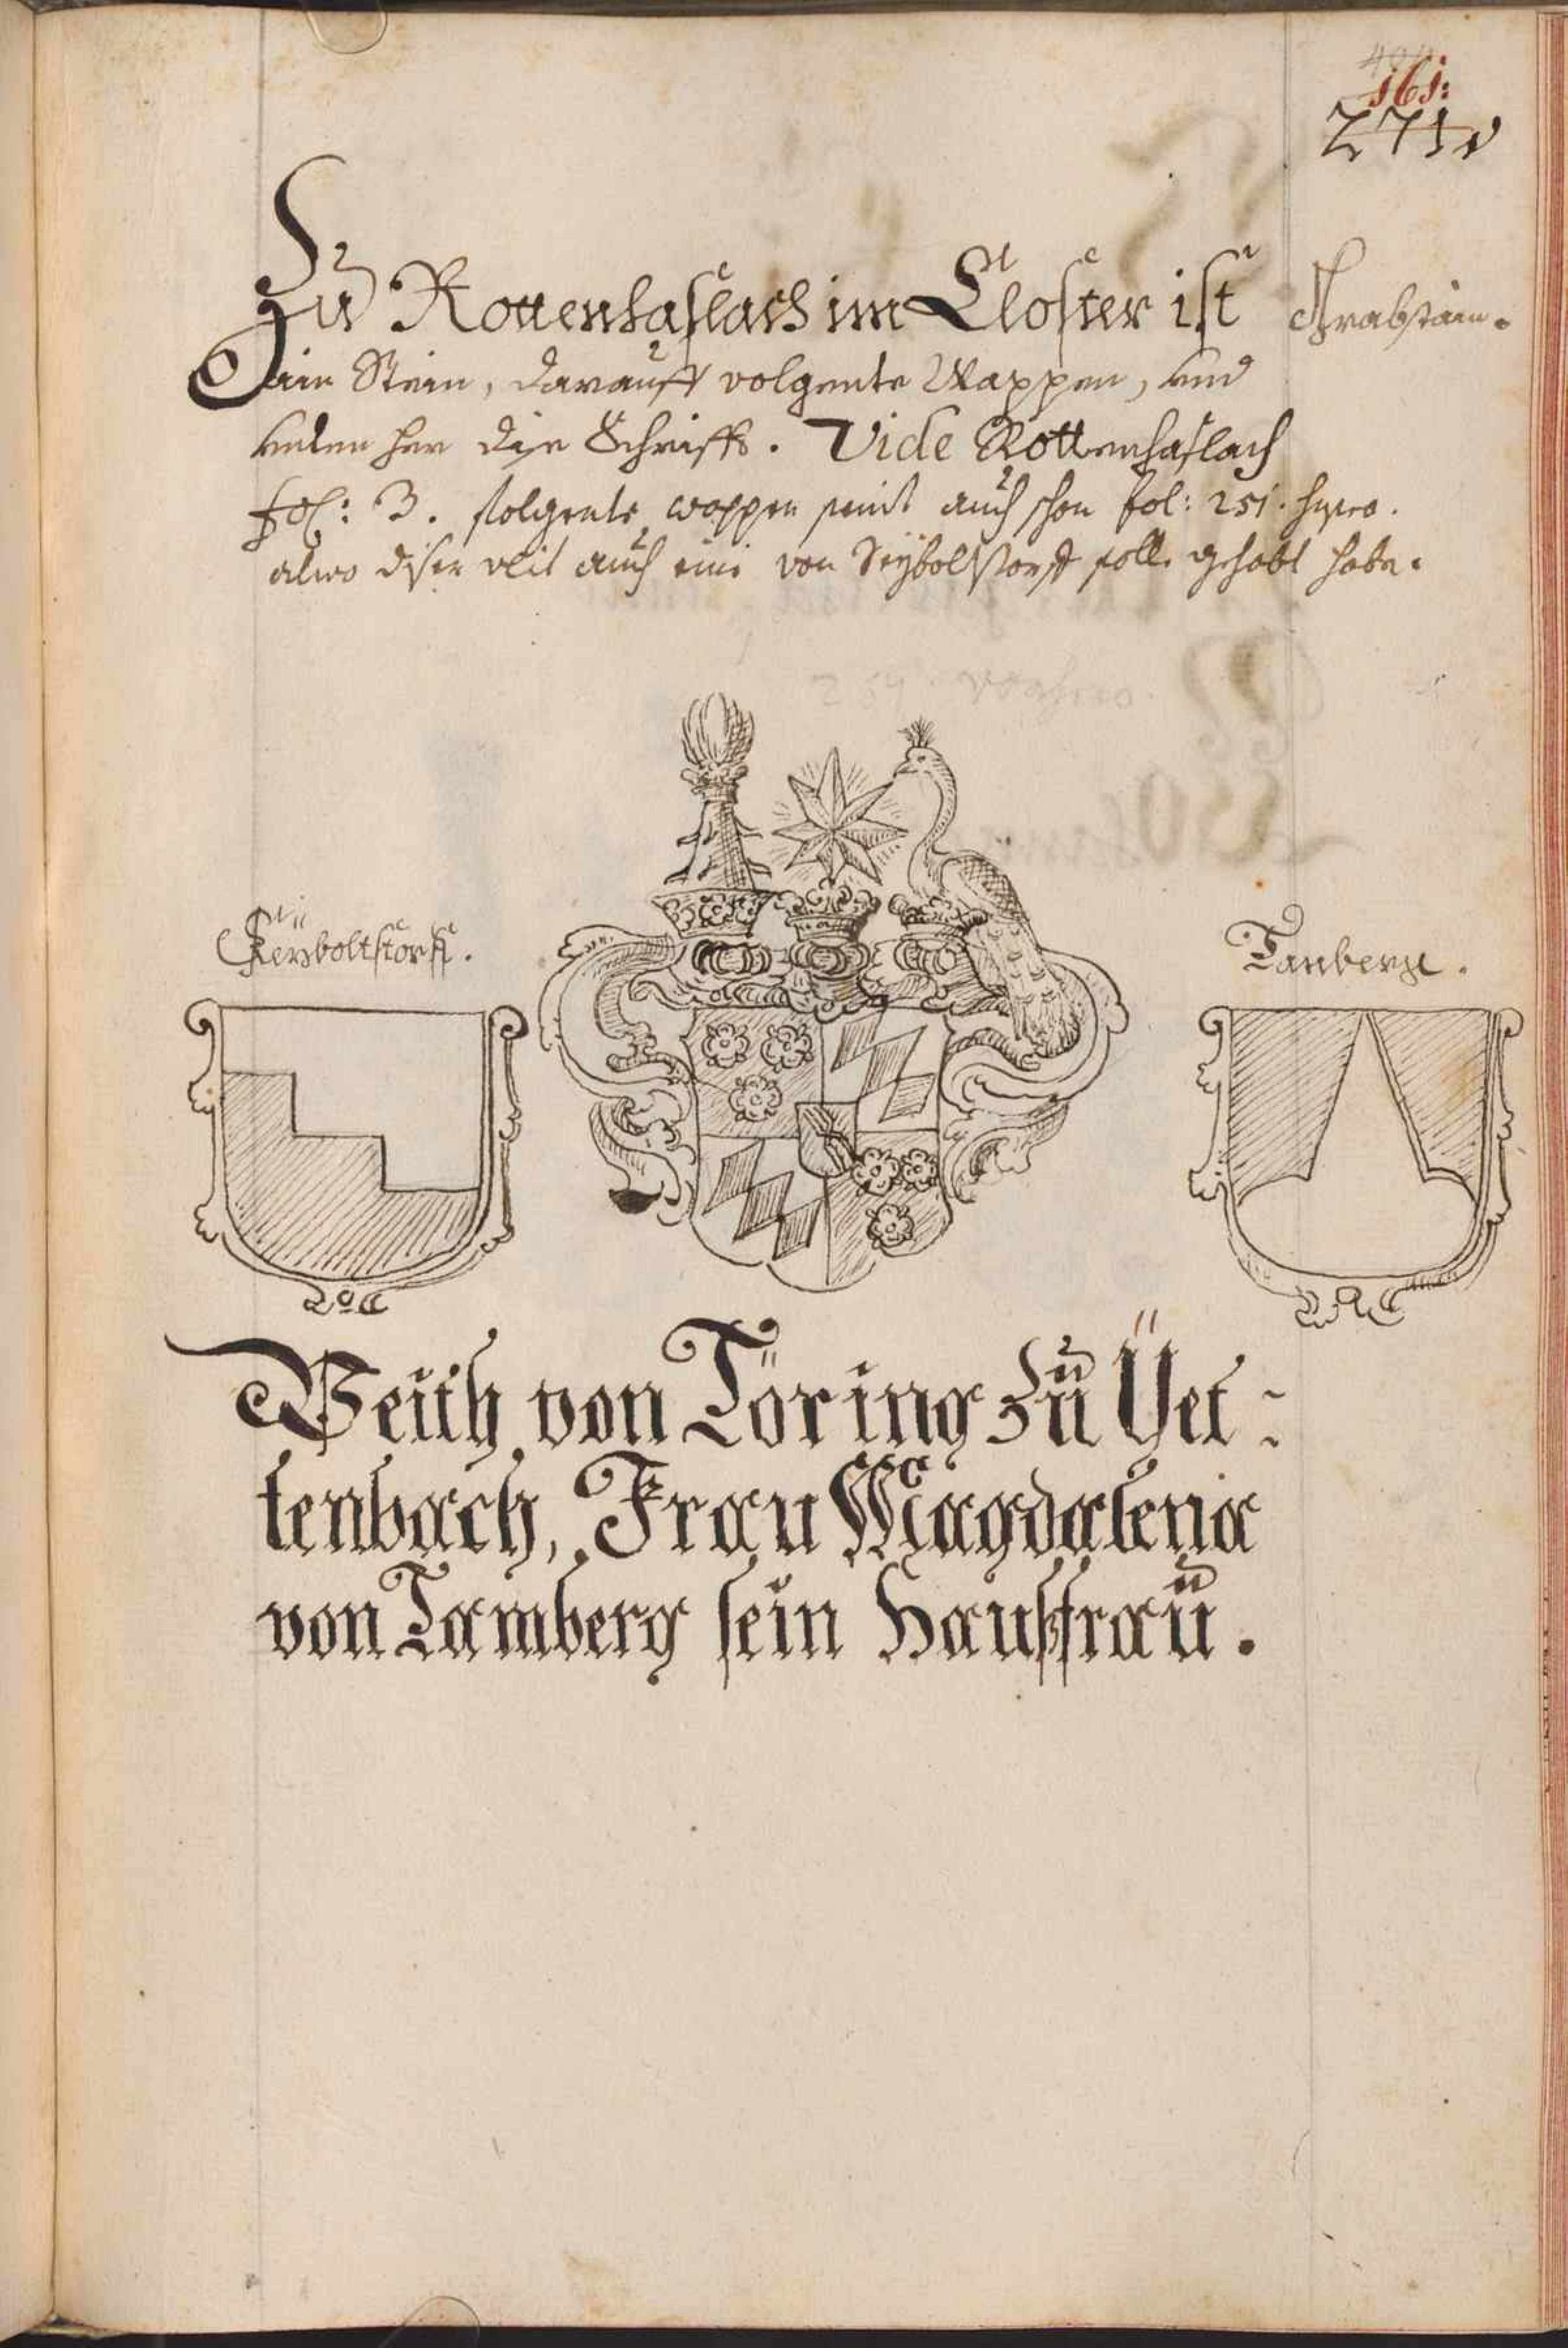 161:
271
Zu Rottenhaslach im Closter ist
Grabstain.
Ain Stein, darauff volgente Wappen, vnd
vnden her die Schrifft. Vide Rottenhaslach
fol: 3. folgente wappen seint auch schon fol: 251.
alwo diser veit auch eine von Seyboltstorff solle gehabt haben.
Seyboltstorff.
Tanberg.
Veith von Töring zu Yet:
tenbach, Frau Magdalena
von Tamberg sein Haußfrau.